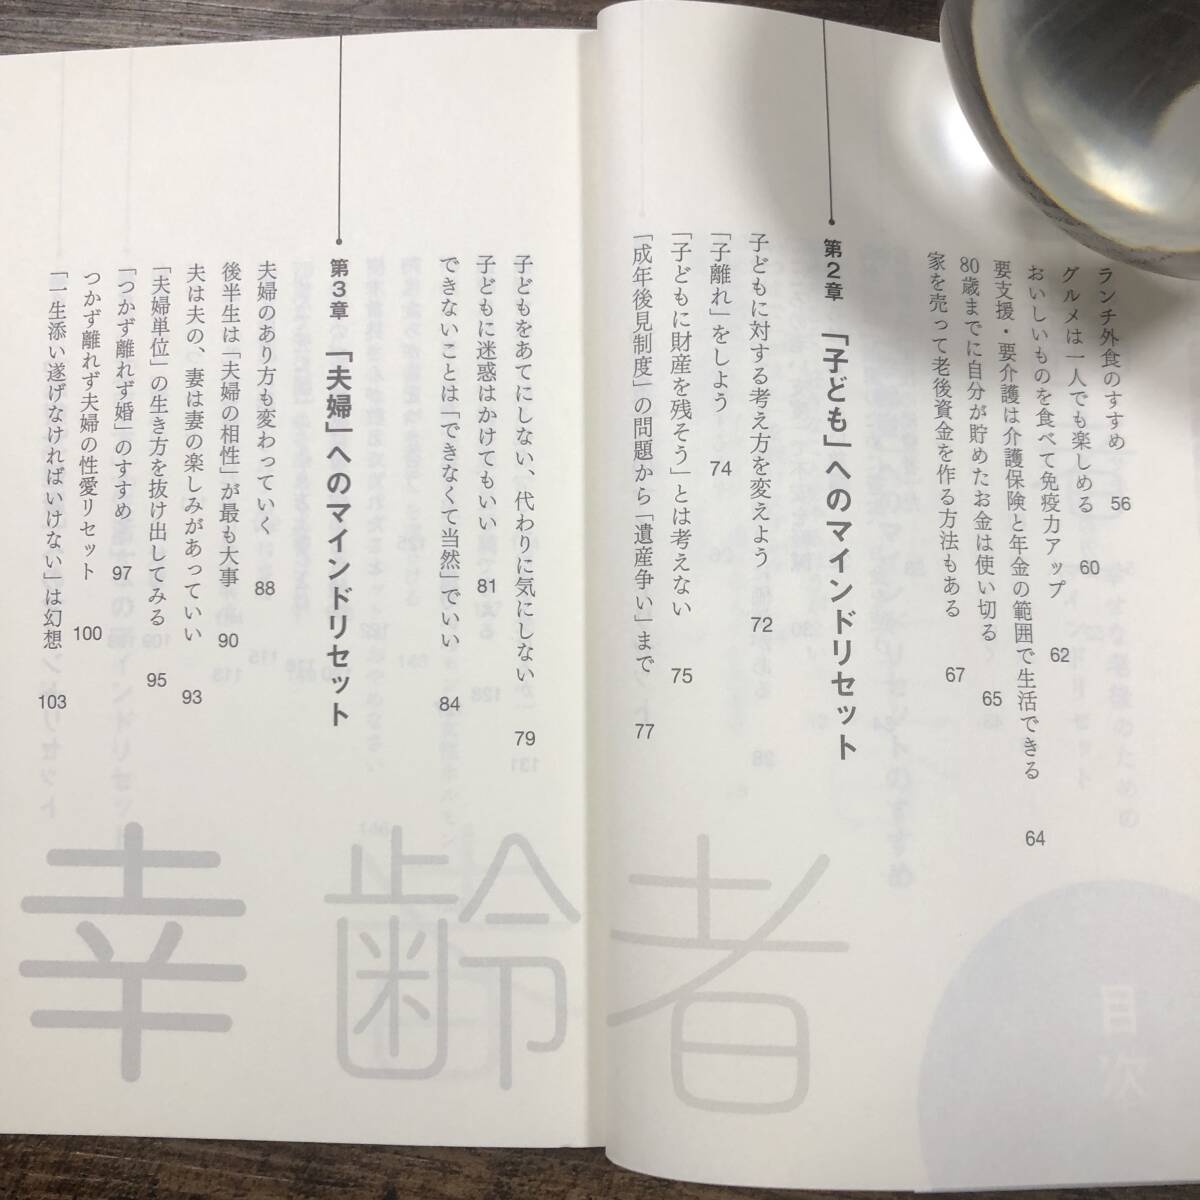 ランチ外食のすすめ 56
グルメは一人でも楽しめる 60
おいしいものを食べて免疫力アップ 62
要支援・要介護は介護保険と年金の範囲で生活できる 64
80歳までに自分が貯めたお金は使い切る 65
家を売って老後資金を作る方法もある 67
第2章 「子ども」へのマインドリセット
子どもに対する考え方を変えよう 72
「子離れ」をしよう 74
「子どもに財産を残そう」とは考えない 75
「成年後見制度」の問題から「遺産争い」まで 77
子どもをあてにしない、代わりに気にしない 79
子どもに迷惑はかけてもいい 81
できないことは「できなくて当然」でいい 84
第3章 「夫婦」へのマインドリセット
夫婦のあり方も変わっていく 88
後半生は「夫婦の相性」が最も大事 90
夫は夫の、妻は妻の楽しみがあっていい 93
「夫婦単位」の生き方を抜け出してみる 95
「つかず離れず婚」のすすめ 97
つかず離れず夫婦の性愛リセット 100
「一生添い遂げなければいけない」は幻想 103
幸齢者
目次